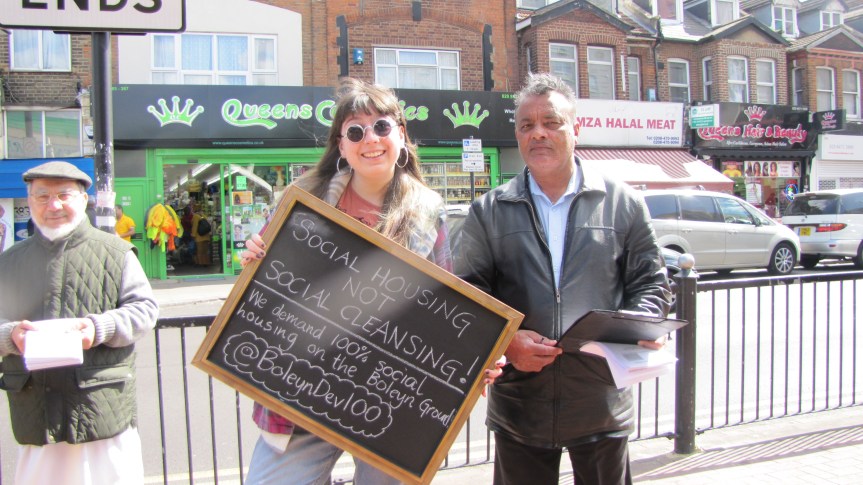 ENDS
Queens
MZA HALAL MEAT
Queens Hair & Beauty
SOCIAL HOUSING
NOT
SOCIAL CLEANSING!
We demand 100% social
housing on the Boleyn Ground
@BoleynDev100